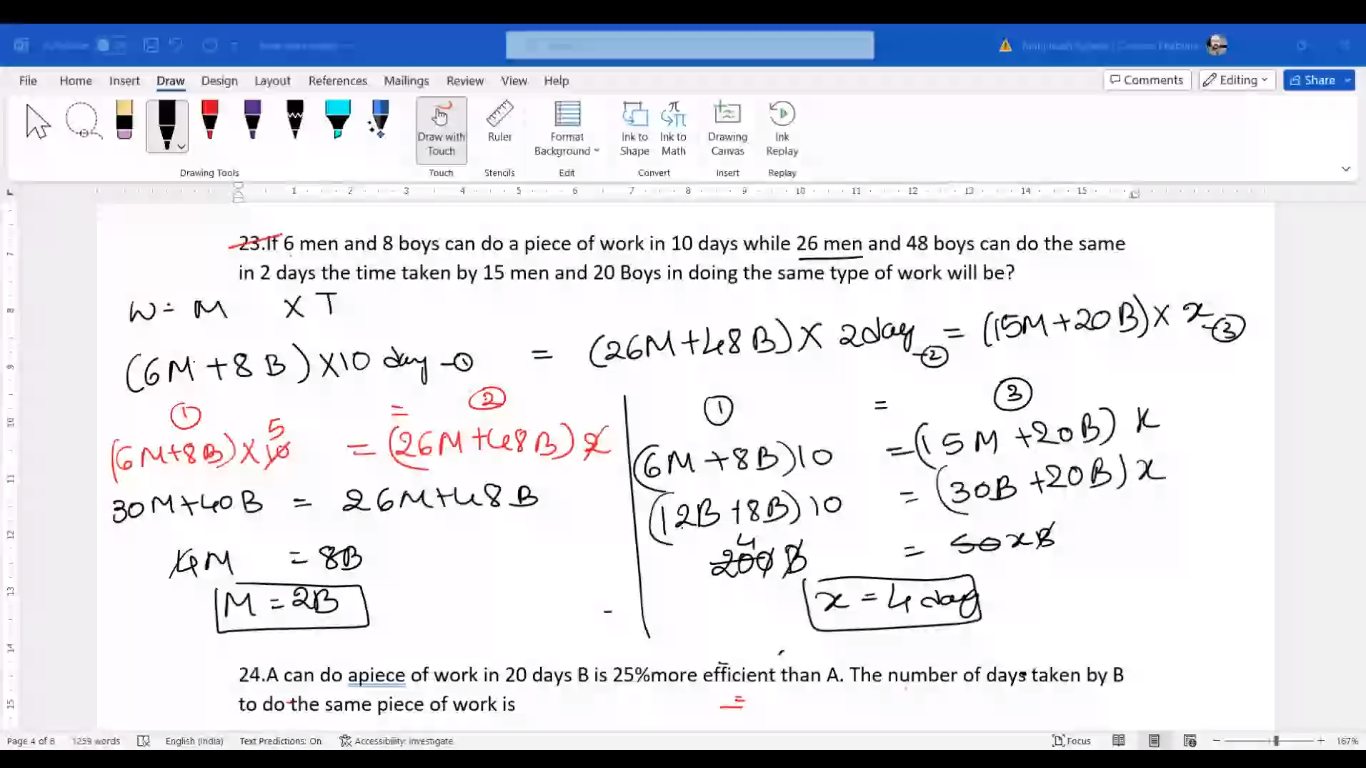 File Home Insert Draw Design Layout References Mailings Review View Help Comments Editing Share
Draw with Touch Ruler Format Background Ink to Shape Ink to Math Drawing Canvas Ink Replay
Drawing Tools Touch Stencils Edit Convert Insert Replay
1 2 3 4 5 6 7 8 9 10 11 12 13 14 15
23.If 6 men and 8 boys can do a piece of work in 10 days while 26 men and 48 boys can do the same
in 2 days the time taken by 15 men and 20 Boys in doing the same type of work will be?
W = M × T
(6M + 8B) × 10 day -① = (26M + 48B) × 2day -② = (15M + 20B) × x -③
① = ②
(6M + 8B) × 10 5 = (26M + 48B) 2
30M + 40B = 26M + 48B
4M = 8B
M = 2B
① = ③
(6M + 8B) 10 = (15M + 20B) x
(12B + 8B) 10 = (30B + 20B) x
4
200 B = 50xB
x = 4 day
24.A can do apiece of work in 20 days B is 25%more efficient than A. The number of days taken by B
to do the same piece of work is
Page 4 of 6 1259 words English (India) Text Predictions: On Accessibility: Investigate Focus 167%